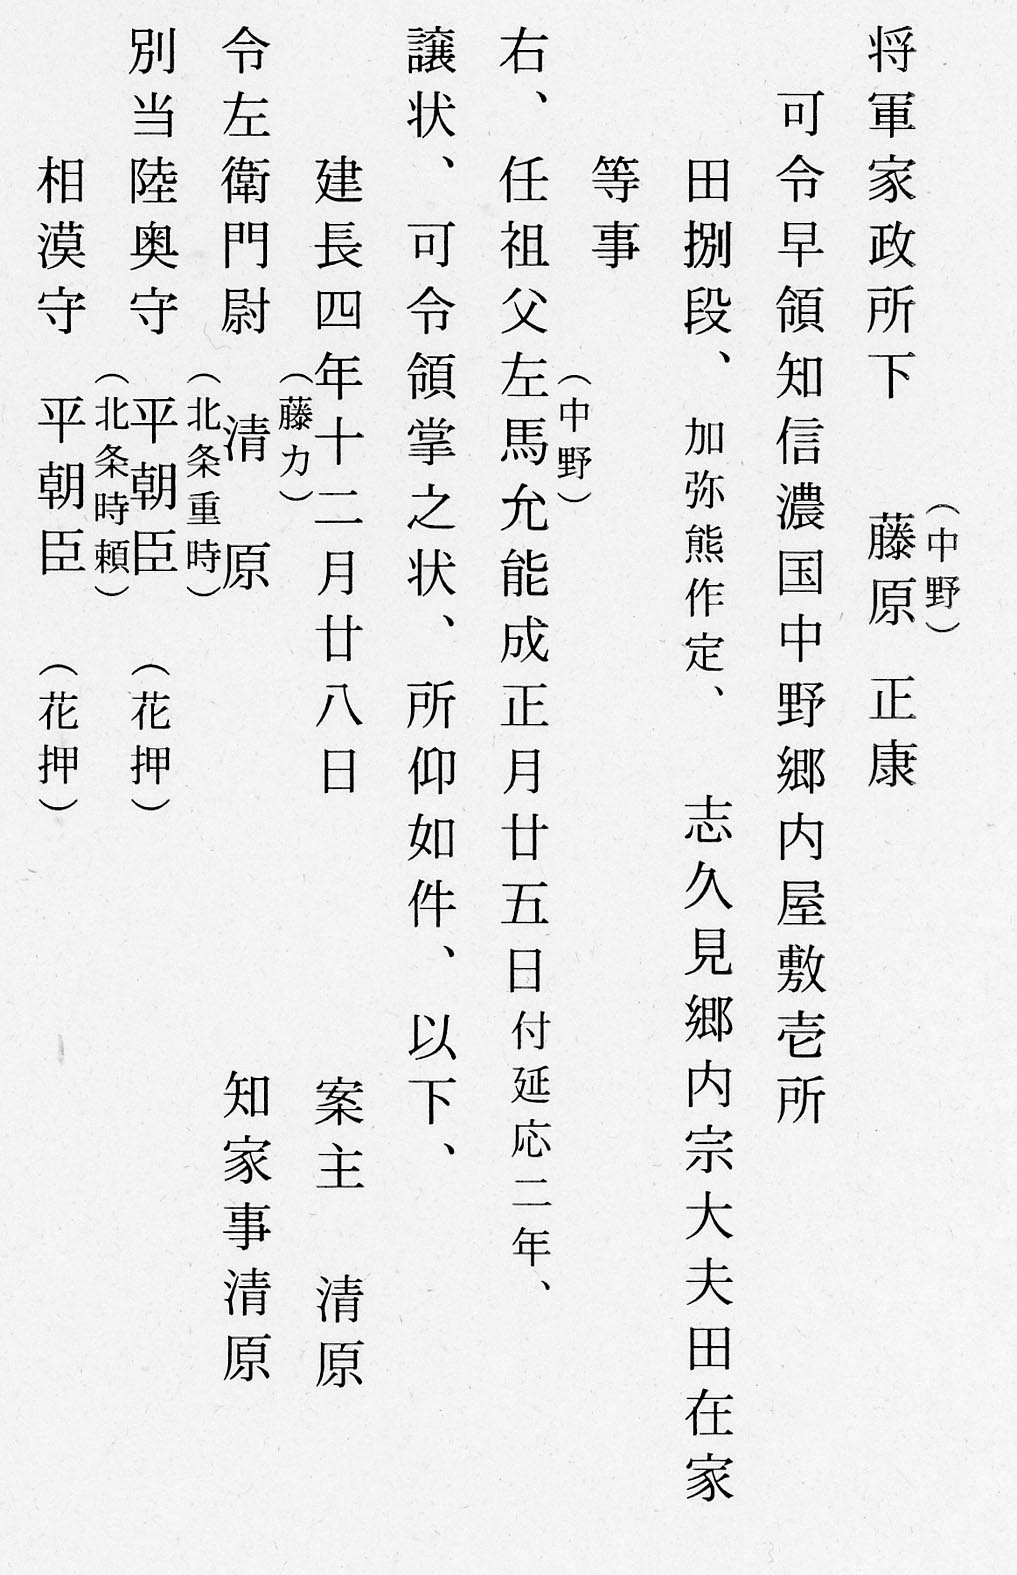 将軍家政所下　藤原(中野)　正康
可令早領知信濃国中野郷内屋敷壱所
田捌段、加弥熊作定、　志久見郷内宗大夫田在家
等事
右、任祖父左馬允(中野)能成正月廿五日付延応二年、
譲状、可令領掌之状、所仰如件、以下、
建長四年十二月廿八日　案主　清原
令左衛門尉　清(藤カ)原　知家事清原
別当陸奥守　平朝臣(北条重時)　(花押)
相漠守　平朝臣(北条時頼)　(花押)